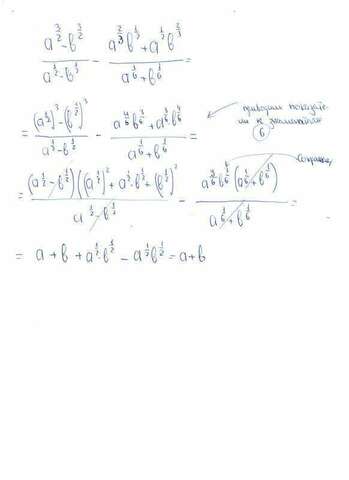 a^{3/2} - b^{3/2} / a^{1/2} - b^{1/3} - a^{2/3} b^{1/3} + a^{1/3} b^{2/3} / a^{1/6} + b^{1/6} =
= (a^{1/2})^3 - (b^{1/2})^3 / a^{1/2} - b^{1/2} - a^{4/6} b^{3/6} + a^{3/6} b^{4/6} / a^{1/6} + b^{1/6}
приводим показате-
ли к знаменателю
6
Сокращ.
= (a^{1/2} - b^{1/2})((a^{1/2})^2 + a^{1/2} · b^{1/2} + (b^{1/2})^2) / a^{1/2} - b^{1/2} - a^{3/6} b^{3/6} (a^{1/6} + b^{1/6}) / a^{1/6} + b^{1/6} =
= a + b + a^{1/2} · b^{1/2} - a^{1/2} b^{1/2} = a + b